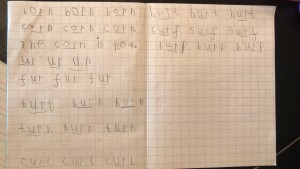 born born born
corn corn corn
The corn is
ur ur ur
fur fur fur
burn burn
turn turn
curl curl curl
hurt hurt hurt
surf surf surf
burp burp burp